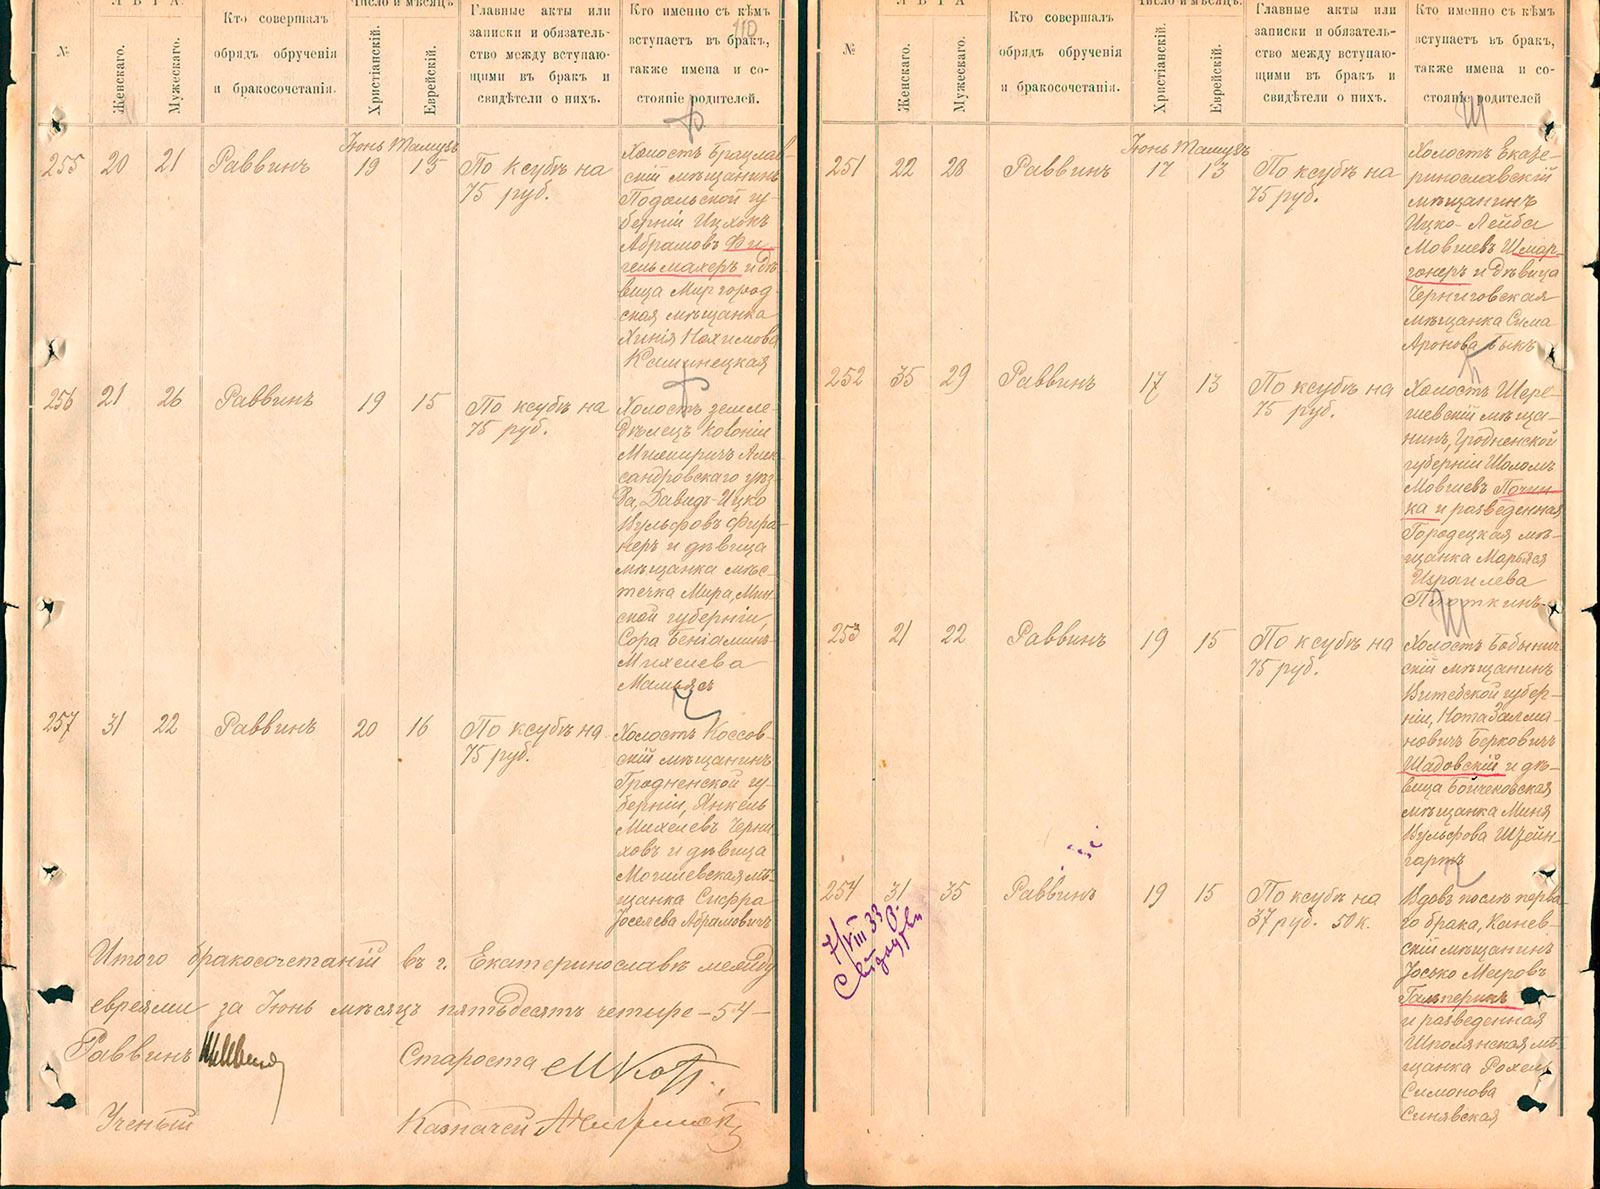 ЛѢТА.
Число и мѣсяцъ.
№
Женскаго.
Мужескаго.
Кто совершалъ
обрядъ обрученія
и бракосочетанія.
Христіанскій.
Еврейскій.
Главные акты или
записки и обязатель-
ство между вступаю-
щими въ бракъ и
свидѣтели о нихъ.
Кто именно съ кѣмъ
вступаетъ въ бракъ,
также имена и со-
стояніе родителей.
110
Іюнь Тамузъ
255 20 21 Раввинъ 19 15
По ксубѣ на
75 руб.
Холостъ Брацлав-
скій мѣщанинъ
Подольской гу-
берніи Ицхокъ
Абрамовъ Фи-
гельмахеръ и дѣ-
вица Миргород-
ская мѣщанка
Хинія Нохимова
Каминецкая
256 21 26 Раввинъ 19 15
По ксубѣ на
75 руб.
Холостъ земле-
дѣлецъ колоніи
Межиричъ Алек-
сандровскаго уѣз-
да, Давидъ-Ицко
Вульфовъ Фира-
неръ и дѣвица
мѣщанка мѣс-
течка Мира, Мин-
ской губерніи,
Сора Беніаминъ-
Михелева
257 31 22 Раввинъ 20 16
По ксубѣ на
75 руб.
Холостъ Коссов-
скій мѣщанинъ
Гродненской гу-
берніи, Янкель
Михелевъ Черни-
ховъ и дѣвица
Могилевская мѣ-
щанка Сифра
Іоселева Абрамовичъ
Итого бракосочетаній въ г. Екатеринославѣ между
евреями за Іюнь мѣсяцъ пятьдесятъ четыре – 54 –
Раввинъ
Староста
Ученый
Казначей
ЛѢТА
Число и мѣсяцъ.
№
Женскаго.
Мужескаго.
Кто совершалъ
обрядъ обрученія
и бракосочетанія.
Христіанскій.
Еврейскій.
Главные акты или
записки и обязатель-
ство между вступаю-
щими въ бракъ и
свидѣтели о нихъ.
Кто именно съ кѣмъ
вступаетъ въ бракъ,
также имена и со-
стояніе родителей
Ш
Іюнь Тамузъ
251 22 28 Раввинъ 17 13
По ксубѣ на
75 руб.
Холостъ Екате-
ринославскій
мѣщанинъ
Ицко-Лейба
Мовшевъ Шмар-
гонеръ и дѣвица
Черниговская
мѣщанка Сима
Аронова Быкъ
П
252 35 29 Раввинъ 17 13
По ксубѣ на
75 руб.
Холостъ Шере-
шевскій мѣща-
нинъ, Гродненской
губерніи Шоломъ
Мовшевъ Почин-
ка и разведенная
Городецкая мѣ-
щанка Марьяся
Израилева
Плоткинъ
Ш
253 21 22 Раввинъ 19 15
По ксубѣ на
75 руб.
Холостъ Бобынич-
скій мѣщанинъ
Витебской губер-
ніи, Нота Залма-
новичъ Берковичъ
Шадовскій и дѣ-
вица Бойчековская
мѣщанка Миня
Вульфова Штейн-
гартъ
254 31 35 Раввинъ 19 15
По ксубѣ на
37 руб. 50 к.
Вдовъ послѣ перва-
го брака, Каневс-
скій мѣщанинъ
Іосько Меировъ
Гальперинъ
и разведенная
Шполянская мѣ-
щанка Рохель
Симонова
Синявская
7/VIII 33